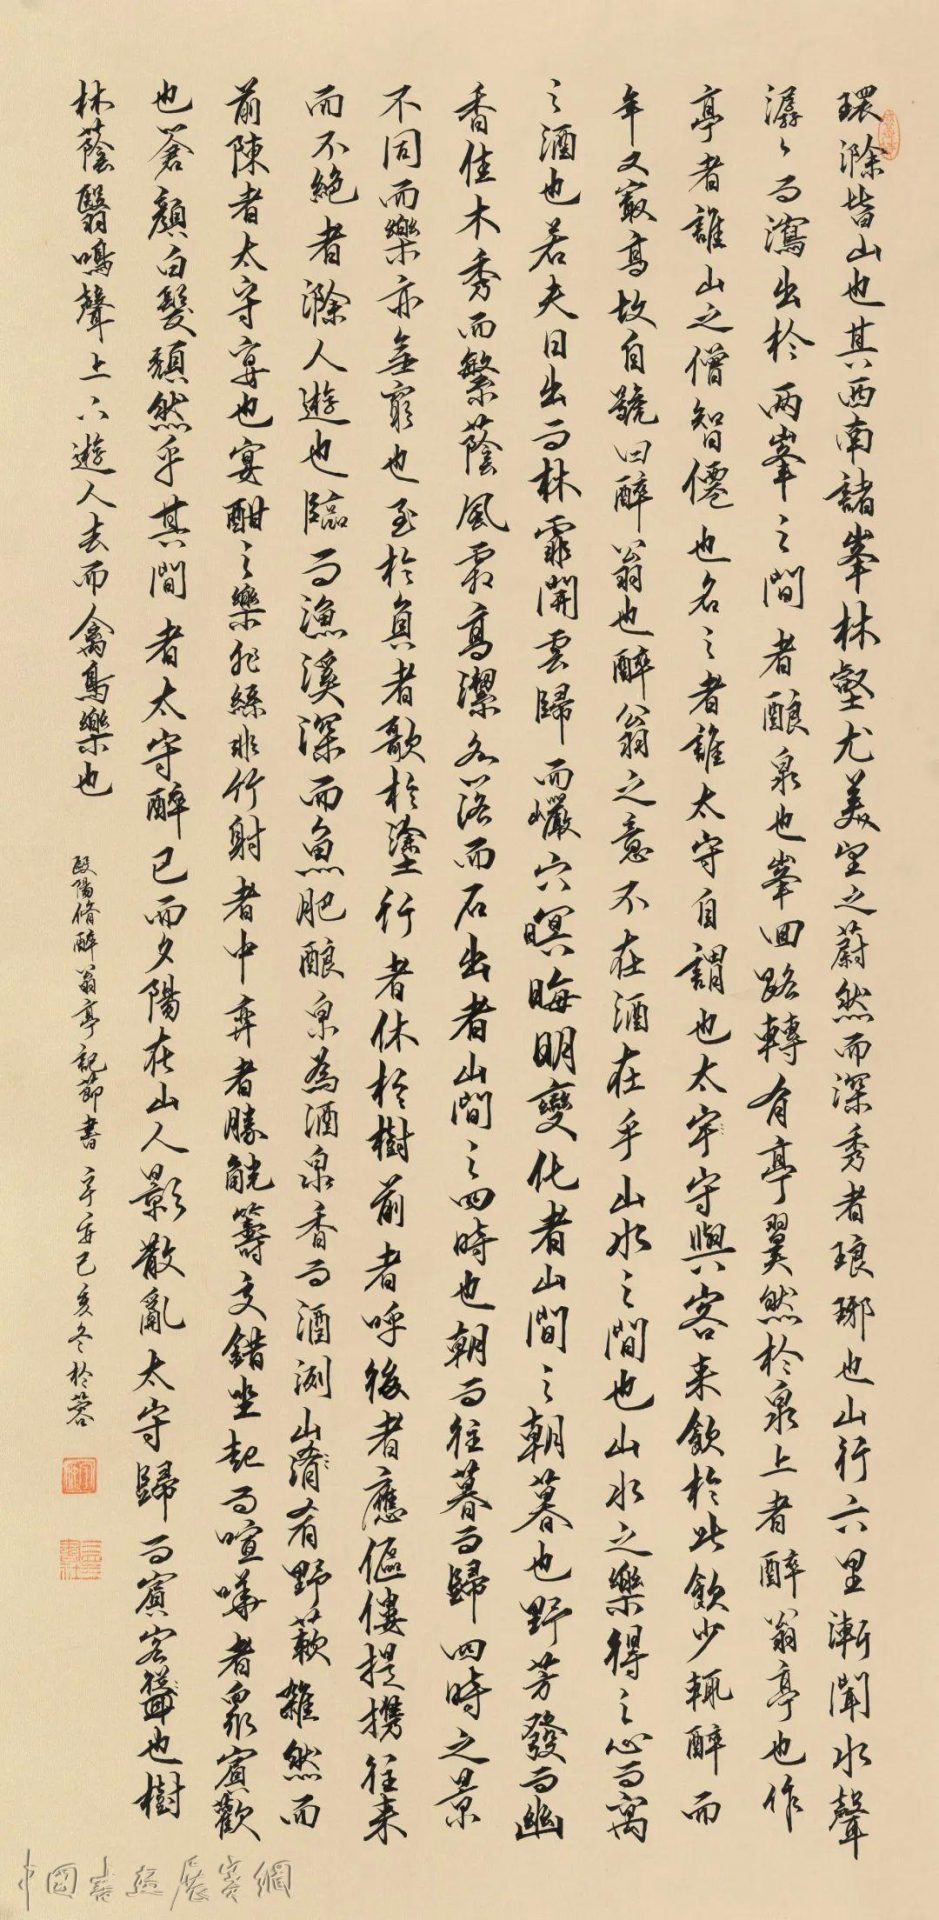 環滁皆山也其西南諸峯林壑尤美望之蔚然而深秀者琅琊也山行六里漸聞水聲
潺々而瀉出於兩峯之間者釀泉也峯回路轉有亭翼然於泉上者醉翁亭也作
亭者誰山之僧智僊也名之者誰太守自謂也太守與客来飲於此飲少輒醉而
年又最高故自號曰醉翁也醉翁之意不在酒在乎山水之間也山水之樂得之心而寓
之酒也若夫日出而林霏開雲歸而巖穴暝晦明變化者山間之朝暮也野芳發而幽
香佳木秀而繁蔭風霜高潔水落而石出者山間之四時也朝而往暮而歸四時之景
不同而樂亦無窮也至於負者歌於塗行者休於樹前者呼後者應傴僂提携往来
而不絕者滁人遊也臨而漁溪深而魚肥釀泉為酒泉香而酒洌山肴野蔌雜然而
前陳者太守宴也宴酣之樂非絲非竹射者中弈者勝觥籌交錯坐起而喧嘩者衆賓歡
也蒼顏白髮頹然乎其間者太守醉已而夕陽在山人影散亂太守歸而賓客也樹
林蔭翳鳴聲上下遊人去而禽鳥樂也
歐陽脩醉翁亭記節書 己亥冬於蓉
中國書法展賽網